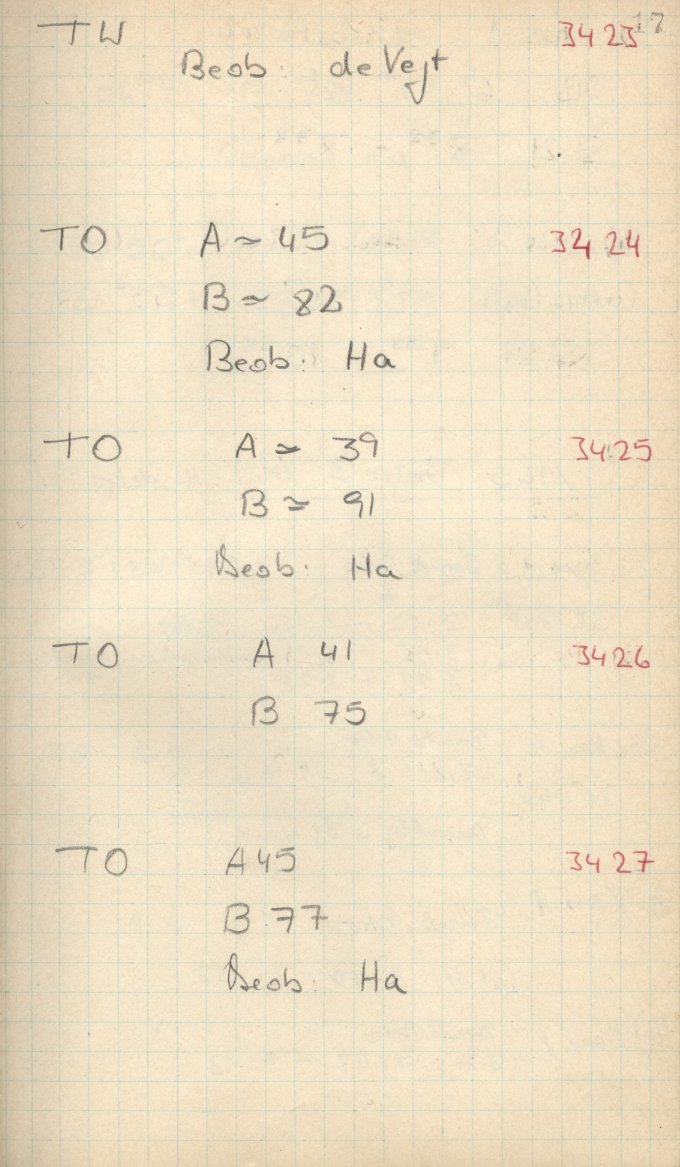 17
TW 3423
Beob: de Vegt
TO A ≃ 45 3424
B ≃ 82
Beob: Ha
TO A ≃ 39 3425
B ≃ 91
Beob: Ha
TO A 41 3426
B 75
TO A 45 3427
B 77
Beob: Ha